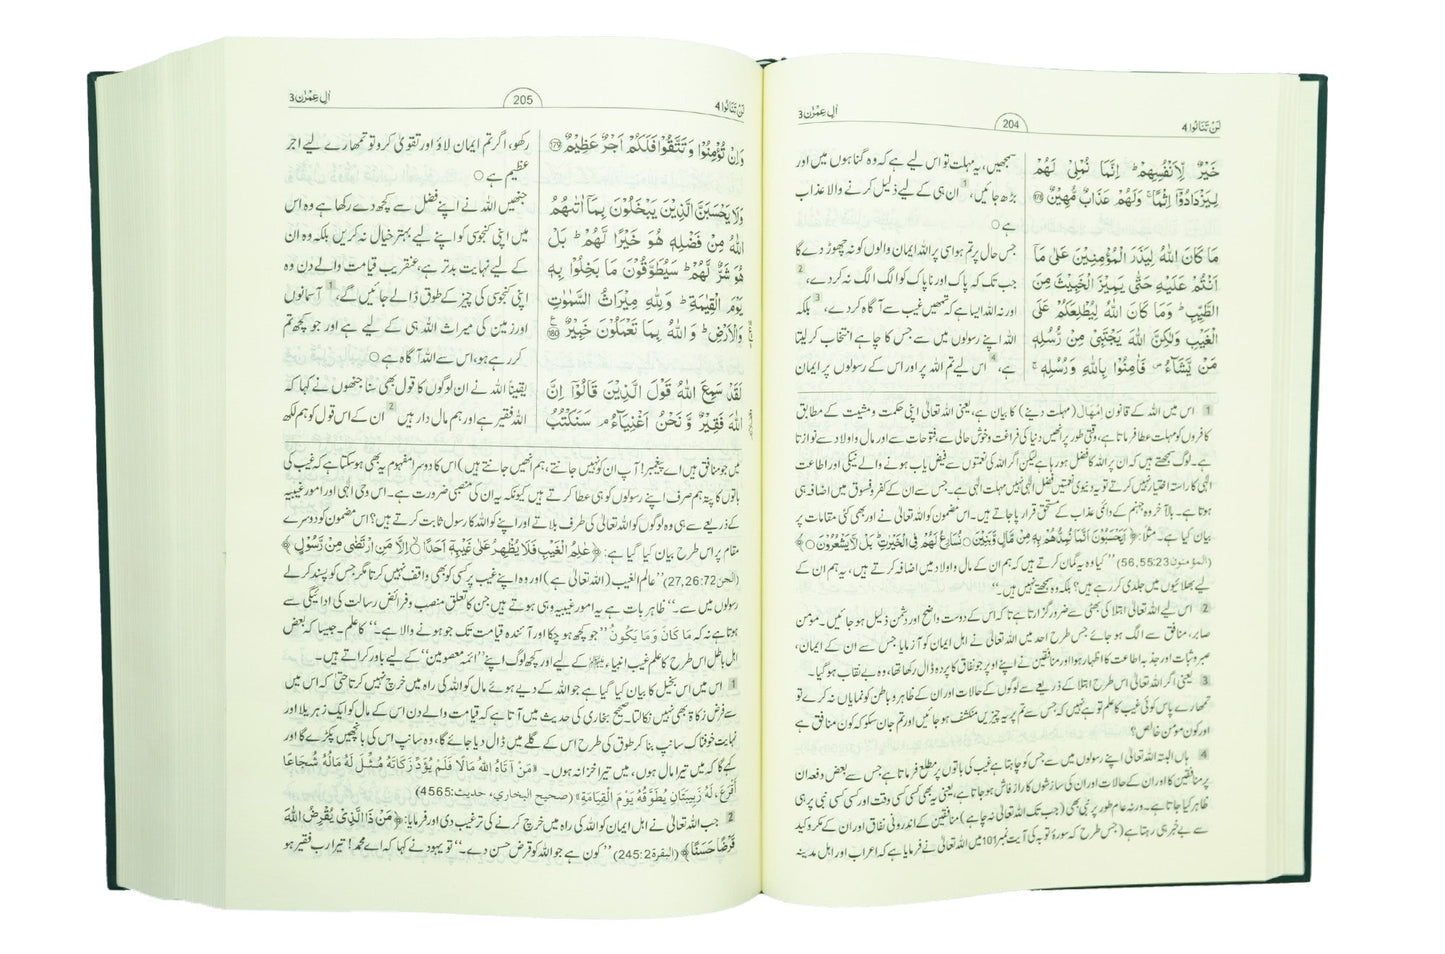 لَنْ تَنَالُوا 4
204
اٰلِ عِمْرٰن 3
خَيْرٌ لِّاَنْفُسِهِمْ ۭ اِنَّمَا نُمْلِىْ لَهُمْ
لِيَزْدَادُوْٓا اِثْمًا ۚ وَلَهُمْ عَذَابٌ مُّهِيْنٌ ۝۱۷۸
مَا كَانَ اللّٰهُ لِيَذَرَ الْمُؤْمِنِيْنَ عَلٰى مَآ
اَنْتُمْ عَلَيْهِ حَتّٰى يَمِيْزَ الْخَبِيْثَ مِنَ
الطَّيِّبِ ۭ وَمَا كَانَ اللّٰهُ لِيُطْلِعَكُمْ عَلَى
الْغَيْبِ وَلٰكِنَّ اللّٰهَ يَجْتَبِىْ مِنْ رُّسُلِهٖ
مَنْ يَّشَاۗءُ ۠ فَاٰمِنُوْا بِاللّٰهِ وَرُسُلِهٖ ۚ
سمجھیں، یہ مہلت تو اس لیے ہے کہ وہ گناہوں میں اور
بڑھ جائیں، 1 ان ہی کے لیے ذلیل کرنے والا عذاب
ہے ○
جس حال پر تم ہو اسی پر اللہ ایمان والوں کو نہ چھوڑ دے گا
جب تک کہ پاک اور ناپاک کو الگ الگ نہ کر دے، 2
اور نہ اللہ ایسا ہے کہ تمھیں غیب سے آگاہ کر دے، 3 بلکہ
اللہ اپنے رسولوں میں سے جس کا چاہے انتخاب کر لیتا
ہے، 4 اس لیے تم اللہ پر اور اس کے رسولوں پر ایمان
1 اس میں اللہ کے قانون اِمْہَال (مہلت دینے) کا بیان ہے، یعنی اللہ تعالیٰ اپنی حکمت و مشیت کے مطابق
کافروں کو مہلت عطا فرماتا ہے، وقتی طور پر انھیں دنیا کی فراغت و خوش حالی سے، فتوحات سے اور مال و اولاد سے نوازتا
ہے۔ لوگ سمجھتے ہیں کہ ان پر اللہ کا فضل ہو رہا ہے لیکن اگر اللہ کی نعمتوں سے فیض یاب ہونے والے نیکی اور اطاعت
الٰہی کا راستہ اختیار نہیں کرتے تو یہ دنیوی نعمتیں فضل الٰہی نہیں، مہلت الٰہی ہے۔ جس سے ان کے کفر و فسوق میں اضافہ ہی
ہوتا ہے۔ بالآخر وہ جہنم کے دائمی عذاب کے مستحق قرار پا جاتے ہیں۔ اس مضمون کو اللہ تعالیٰ نے اور بھی کئی مقامات پر
بیان کیا ہے۔ مثلاً: ﴿اَيَحْسَبُوْنَ اَنَّمَا نُمِدُّهُمْ بِهٖ مِنْ مَّالٍ وَّبَنِيْنَ ○ نُسَارِعُ لَهُمْ فِي الْخَيْرٰتِ ۭ بَلْ لَّا يَشْعُرُوْنَ ○﴾
(المؤمنون 56,55:23) ”کیا وہ یہ گمان کرتے ہیں کہ ہم ان کے مال و اولاد میں اضافہ کرتے ہیں، یہ ہم ان کے
لیے بھلائیوں میں جلدی کر رہے ہیں؟ بلکہ وہ سمجھتے نہیں ہیں۔“
2 اس لیے اللہ تعالیٰ ابتلا کی بھٹی سے ضرور گزارتا ہے تاکہ اس کے دوست واضح اور دشمن ذلیل ہو جائیں۔ مومن
صابر، منافق سے الگ ہو جائے جس طرح احد میں اللہ تعالیٰ نے اہل ایمان کو آزمایا جس سے ان کے ایمان،
صبر و ثبات اور جذبہ اطاعت کا اظہار ہوا اور منافقین نے اپنے اوپر جو نفاق کا پردہ ڈال رکھا تھا، وہ بے نقاب ہو گیا۔
3 یعنی اگر اللہ تعالیٰ اس طرح ابتلا کے ذریعے سے لوگوں کے حالات اور ان کے ظاہر و باطن کو نمایاں نہ کرے تو
تمھارے پاس کوئی غیب کا علم تو ہے نہیں کہ جس سے تم پر یہ چیزیں منکشف ہو جائیں اور تم جان سکو کہ کون منافق ہے
اور کون مومن خالص؟
4 ہاں البتہ اللہ تعالیٰ اپنے رسولوں میں سے جس کو چاہتا ہے غیب کی باتوں پر مطلع فرماتا ہے جس سے بعض دفعہ ان
پر منافقین کا اور ان کے حالات اور ان کی سازشوں کا راز فاش ہو جاتا ہے، یعنی یہ بھی کسی کسی وقت اور کسی کسی نبی پر ہی
ظاہر کیا جاتا ہے۔ ورنہ عام طور پر نبی بھی (جب تک اللہ نہ چاہے) منافقین کے اندرونی نفاق اور ان کے مکر و کید
سے بے خبر ہی رہتا ہے (جس طرح کہ سورۂ توبہ کی آیت نمبر 101 میں اللہ تعالیٰ نے فرمایا ہے کہ اعراب اور اہل مدینہ
لَنْ تَنَالُوا 4
205
اٰلِ عِمْرٰن 3
وَاِنْ تُؤْمِنُوْا وَتَتَّقُوْا فَلَكُمْ اَجْرٌ عَظِيْمٌ ۝۱۷۹
وَلَا يَحْسَبَنَّ الَّذِيْنَ يَبْخَلُوْنَ بِمَآ اٰتٰىھُمُ
اللّٰهُ مِنْ فَضْلِهٖ ھُوَ خَيْرًا لَّھُمْ ۭ بَلْ
ھُوَ شَرٌّ لَّھُمْ ۭ سَيُطَوَّقُوْنَ مَا بَخِلُوْا بِهٖ
يَوْمَ الْقِيٰمَةِ ۭ وَلِلّٰهِ مِيْرَاثُ السَّمٰوٰتِ
وَالْاَرْضِ ۭ وَاللّٰهُ بِمَا تَعْمَلُوْنَ خَبِيْرٌ ۝۱۸۰
لَقَدْ سَمِعَ اللّٰهُ قَوْلَ الَّذِيْنَ قَالُوْٓا اِنَّ
اللّٰهَ فَقِيْرٌ وَّنَحْنُ اَغْنِيَاۗءُ ۘ سَنَكْتُبُ
رکھو، اگر تم ایمان لاؤ اور تقویٰ کرو تو تمھارے لیے اجر
عظیم ہے ○
جنھیں اللہ نے اپنے فضل سے کچھ دے رکھا ہے وہ اس
میں اپنی کنجوسی کو اپنے لیے بہتر خیال نہ کریں بلکہ وہ ان
کے لیے نہایت بدتر ہے، عنقریب قیامت والے دن وہ
اپنی کنجوسی کی چیز کے طوق ڈالے جائیں گے، 1 آسمانوں
اور زمین کی میراث اللہ ہی کے لیے ہے اور جو کچھ تم
کر رہے ہو، اس سے اللہ آگاہ ہے ○
یقیناً اللہ نے ان لوگوں کا قول بھی سنا جنھوں نے کہا کہ
اللہ فقیر ہے اور ہم مال دار ہیں 2 ان کے اس قول کو ہم لکھ
میں جو منافق ہیں اے پیغمبر! آپ ان کو نہیں جانتے، ہم انھیں جانتے ہیں) اس کا دوسرا مفہوم یہ بھی ہو سکتا ہے کہ غیب کی
باتوں کا پتہ ہم صرف اپنے رسولوں کو ہی عطا کرتے ہیں کیونکہ یہ ان کی منصبی ضرورت ہے۔ اس وحی الٰہی اور امور غیبیہ
کے ذریعے سے ہی وہ لوگوں کو اللہ تعالیٰ کی طرف بلاتے اور اپنے کو اللہ کا رسول ثابت کرتے ہیں؟ اس مضمون کو دوسرے
مقام پر اس طرح بیان کیا گیا ہے: ﴿عٰلِمُ الْغَيْبِ فَلَا يُظْهِرُ عَلٰى غَيْبِهٖٓ اَحَدًا ○ اِلَّا مَنِ ارْتَضٰى مِنْ رَّسُوْلٍ﴾
(الجن 27,26:72) ”عالم الغیب (اللہ تعالیٰ ہے) اور وہ اپنے غیب پر کسی کو بھی واقف نہیں کرتا مگر جس کو پسند کر لے
رسولوں میں سے۔“ ظاہر بات ہے یہ امور غیبیہ وہی ہوتے ہیں جن کا تعلق منصب و فرائض رسالت کی ادائیگی سے
ہوتا ہے نہ کہ مَا كَانَ وَمَا يَكُوْنُ ”جو کچھ ہو چکا اور آئندہ قیامت تک جو ہونے والا ہے۔“ کا علم۔ جیسا کہ بعض
اہل باطل اس طرح کا علم غیب انبیاء کے لیے اور کچھ لوگ اپنے ”ائمہ معصومین“ کے لیے باور کراتے ہیں۔
1 اس میں اس بخیل کا بیان کیا گیا ہے جو اللہ کے دیے ہوئے مال کو اللہ کی راہ میں خرچ نہیں کرتا حتیٰ کہ اس میں
سے فرض زکاۃ بھی نہیں نکالتا۔ صحیح بخاری کی حدیث میں آتا ہے کہ قیامت والے دن اس کے مال کو ایک زہریلا اور
نہایت خوفناک سانپ بنا کر طوق کی طرح اس کے گلے میں ڈال دیا جائے گا، وہ سانپ اس کی باچھیں پکڑے گا اور
کہے گا کہ میں تیرا مال ہوں، میں تیرا خزانہ ہوں۔ «مَنْ آتَاهُ اللّٰهُ مَالًا فَلَمْ يُؤَدِّ زَكَاتَهُ مُثِّلَ لَهُ مَالُهُ شُجَاعًا
أَقْرَعَ، لَهُ زَبِيبَتَانِ يُطَوَّقُهُ يَوْمَ الْقِيَامَةِ» (صحيح البخاري، حديث: 4565)
2 جب اللہ تعالیٰ نے اہل ایمان کو اللہ کی راہ میں خرچ کرنے کی ترغیب دی اور فرمایا: ﴿مَنْ ذَا الَّذِيْ يُقْرِضُ اللّٰهَ
قَرْضًا حَسَنًا﴾ (البقرة 245:2) ”کون ہے جو اللہ کو قرض حسن دے۔“ تو یہود نے کہا کہ اے محمد! تیرا رب فقیر ہو